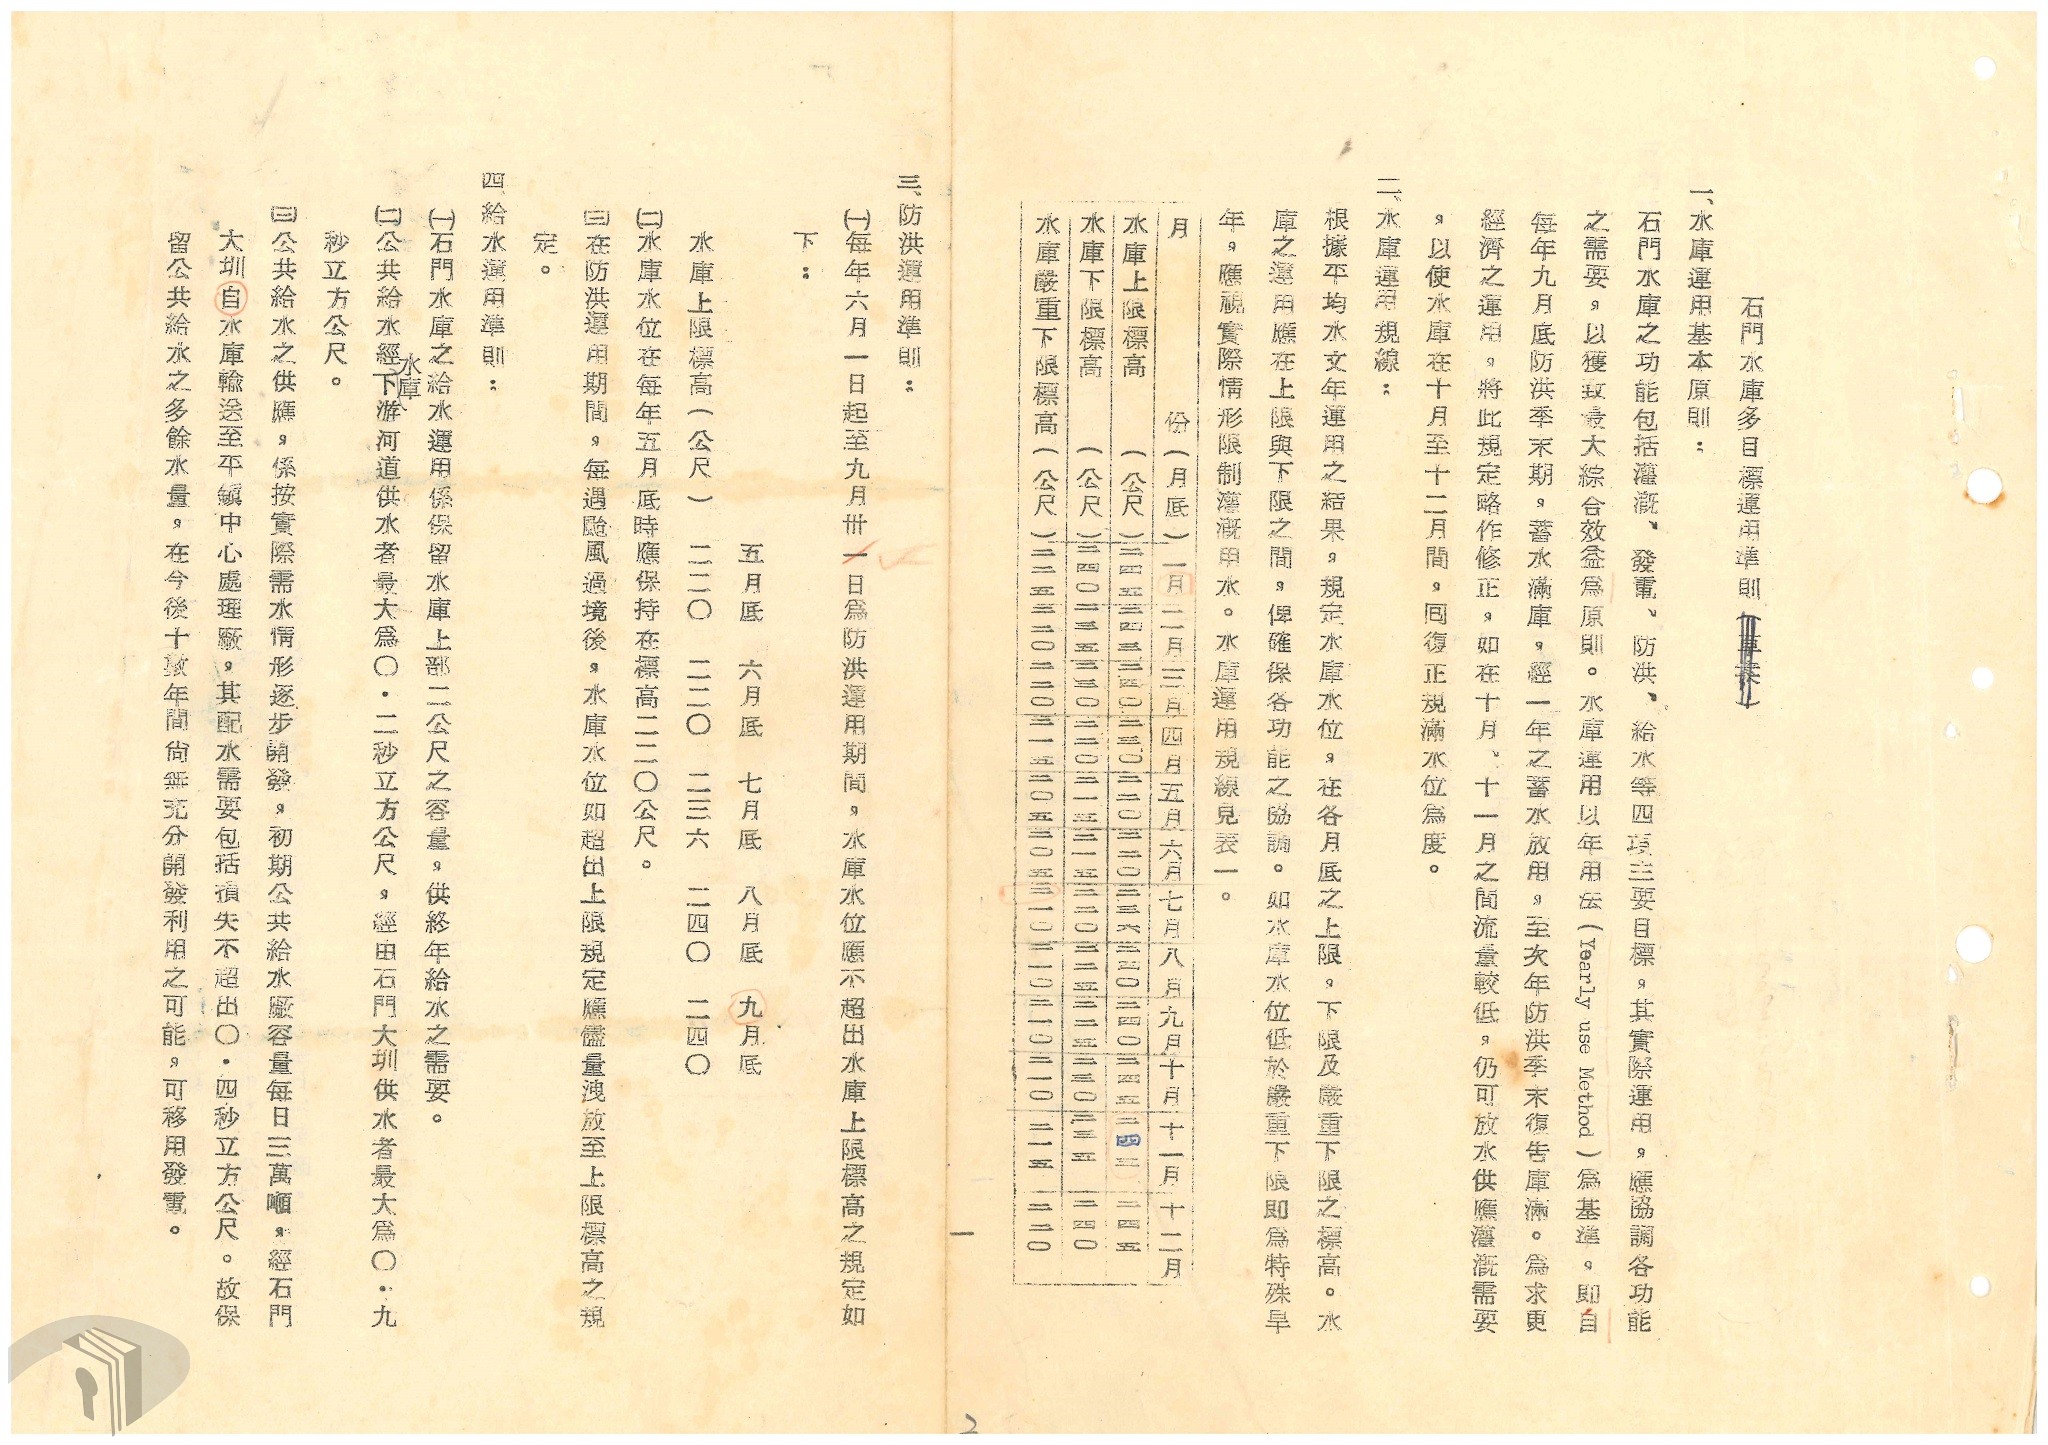 石門水庫多目標運用準則（草案）
一、水庫運用基本原則：
石門水庫之功能包括灌漑、發電、防洪、給水等四項主要目標，其實際運用，應協調各功能
之需要，以獲致最大綜合效益爲原則。水庫運用以年用法（Yearly use Method）爲基準，即自
每年九月底防洪季末期，蓄水滿庫，經一年之蓄水放用，至次年防洪季末復告庫滿。爲求更
經濟之運用，將此規定略作修正，如在十月、十一月之間流量較低，仍可放水供應灌漑需要
，以使水庫在十月至十二月間，囘復正規滿水位爲度。
二、水庫運用規線：
根據平均水文年運用之結果，規定水庫水位，在各月底之上限，下限及嚴重下限之標高。水
庫之運用應在上限與下限之間，俾確保各功能之協調。如水庫水位低於嚴重下限即爲特殊旱
年，應視實際情形限制灌漑用水。水庫運用規線見表一。
月份（月底）一月二月三月四月五月六月七月八月九月十月十一月十二月
水庫上限標高（公尺）二四五 二四三 二四〇 二三〇 二二〇 二二〇 二三六 二四〇 二四〇 二四五 二四二 二四五
水庫下限標高（公尺）二四〇 二三五 二三〇 二二〇 二一五 二一五 二二〇 二二五 二二五 二三〇 二三五 二四〇
水庫嚴重下限標高（公尺）二二五 二二〇 二二〇 二一五 二〇五 二〇五 二一〇 二一〇 二一〇 二一〇 二一五 二二〇
一
三、防洪運用準則：
㈠每年六月一日起至九月卅一日爲防洪運用期間，水庫水位應不超出水庫上限標高之規定如
下：
五月底 六月底 七月底 八月底 九月底
水庫上限標高（公尺）二二〇 二二〇 二三六 二四〇 二四〇
㈡水庫水位在每年五月底時應保持在標高二二〇公尺。
㈢在防洪運用期間，每遇颱風過境後，水庫水位如超出上限規定應儘量洩放至上限標高之規
定。
四、給水運用準則：
㈠石門水庫之給水運用係保留水庫上部二公尺之容量，供終年給水之需要。
㈡公共給水經水庫下游河道供水者最大爲〇．二秒立方公尺，經由石門大圳供水者最大爲〇．九
秒立方公尺。
㈢公共給水之供應，係按實際需水情形逐步開發，初期公共給水廠容量每日三萬噸，經石門
大圳自水庫輸送至平鎭中心處理廠，其配水需要包括損失不超出〇．四秒立方公尺。故保
留公共給水之多餘水量，在今後十數年間尙無充分開發利用之可能，可移用發電。
2